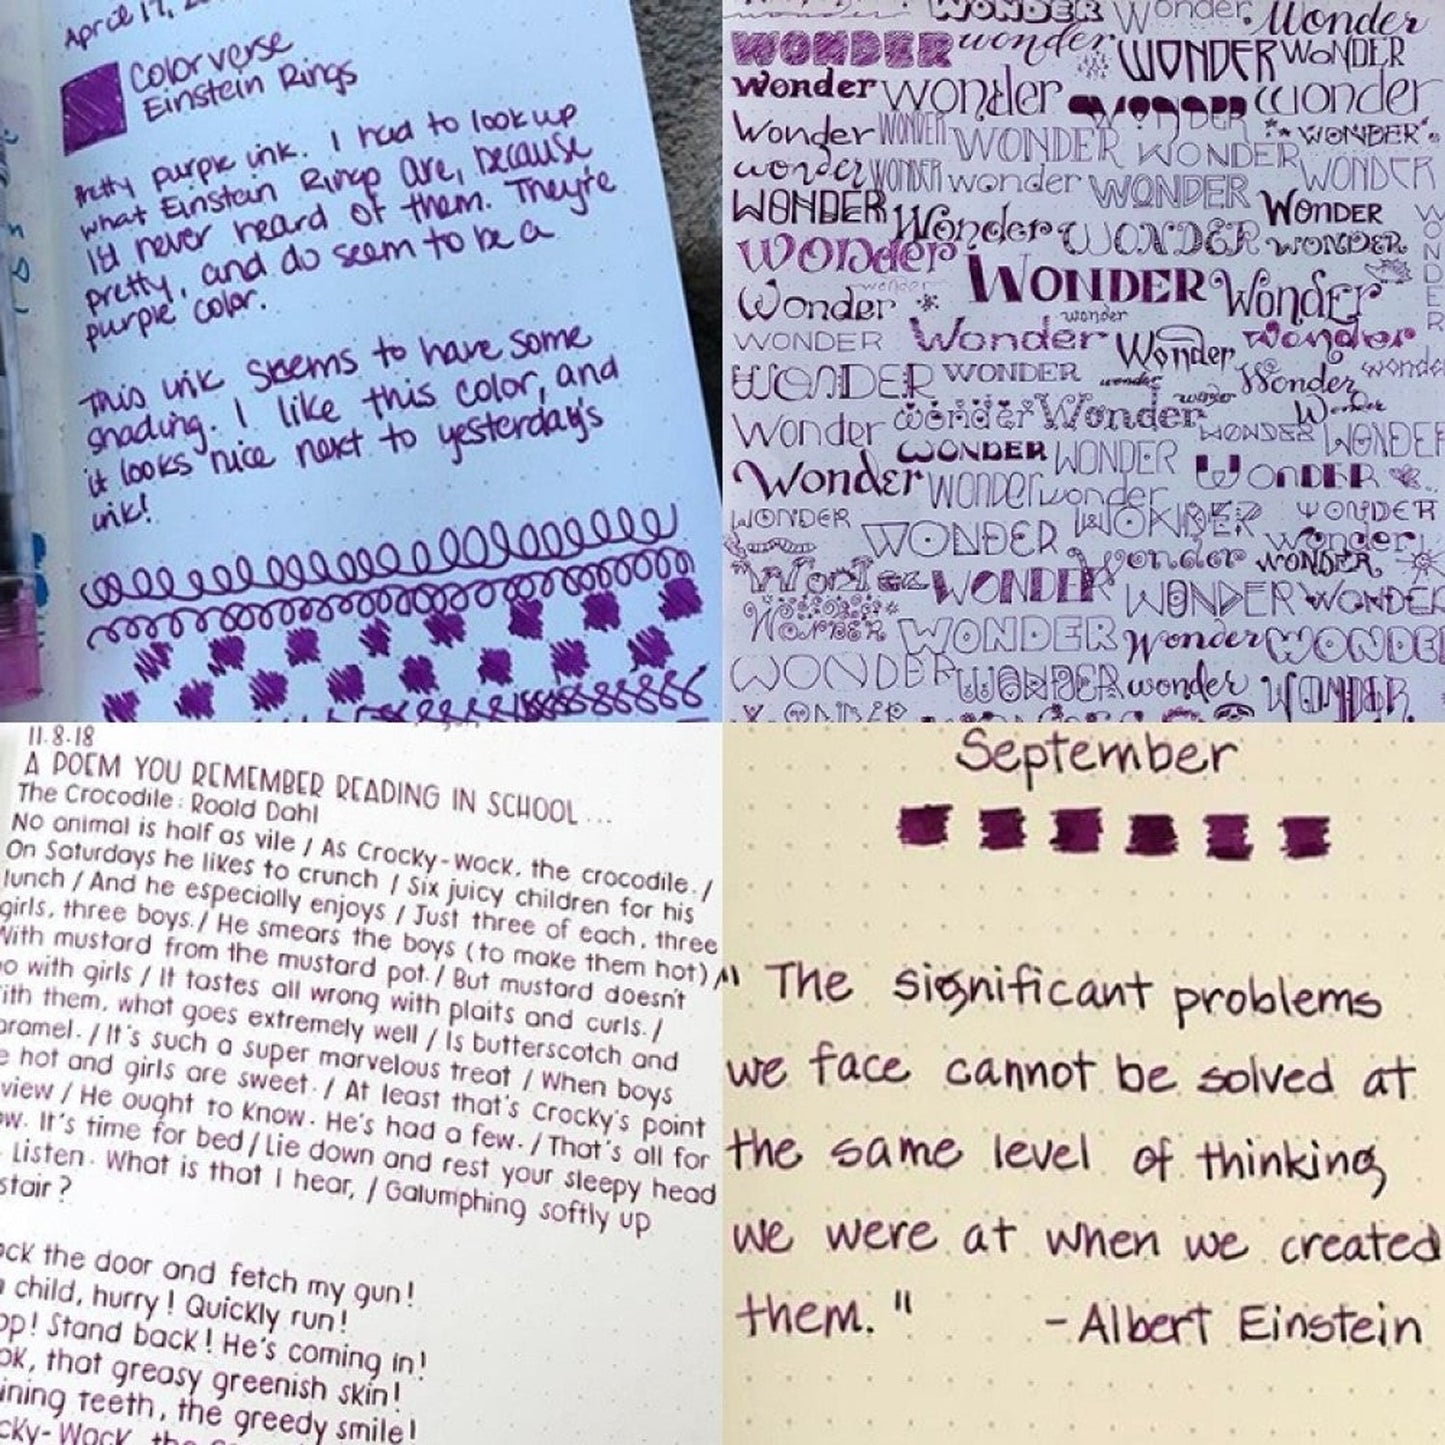 April 17,
Colorverse
Einstein Rings
Pretty purple ink. I had to look up
what Einstein Rings are, because
I'd never heard of them. They're
pretty, and do seem to be a
purple color.
This ink seems to have some
shading. I like this color, and
it looks nice next to yesterday's
ink!
WONDER Wonder Wonder
WONDER wonder WONDER WONDER
Wonder wonder WONDER wonder
Wonder WONDER WONDER WONDER WONDER
wonder WONDER wonder WONDER WONDER
WONDER Wonder WONDER WONDER WONDER
Wonder wonder WONDER Wonder
Wonder wonder
WONDER Wonder Wonder wonder
WONDER WONDER wonder wonder Wonder wonder
Wonder wonder Wonder WONDER Wonder WONDER
Wonder WONDER WONDER WONDER
WONDER Wonder wonder WONDER WONDER
WONDER WONDER Wonder Wonder WONDER
WONDER WONDER WONDER
WONDER WONDER Wonder WONDER
WONDER WONDER wonder WONDER
WONDER
11.8.18
A POEM YOU REMEMBER READING IN SCHOOL ...
The Crocodile: Roald Dahl
No animal is half as vile / As Crocky-Wock, the crocodile. /
On Saturdays he likes to crunch / Six juicy children for his
lunch / And he especially enjoys / Just three of each, three
girls, three boys. / He smears the boys (to make them hot) /
With mustard from the mustard pot. / But mustard doesn't
go with girls / It tastes all wrong with plaits and curls. /
With them, what goes extremely well / Is butterscotch and
caramel. / It's such a super marvelous treat / When boys
hot and girls are sweet. / At least that's Crocky's point
view / He ought to know. He's had a few. / That's all for
now. It's time for bed / Lie down and rest your sleepy head
Listen. What is that I hear, / Galumphing softly up
stair?
the door and fetch my gun!
child, hurry! Quickly run!
Stand back! He's coming in!
that greasy greenish skin!
teeth, the greedy smile!
Crocky-Wock, the
September
"The significant problems
we face cannot be solved at
the same level of thinking
we were at when we created
them." -Albert Einstein